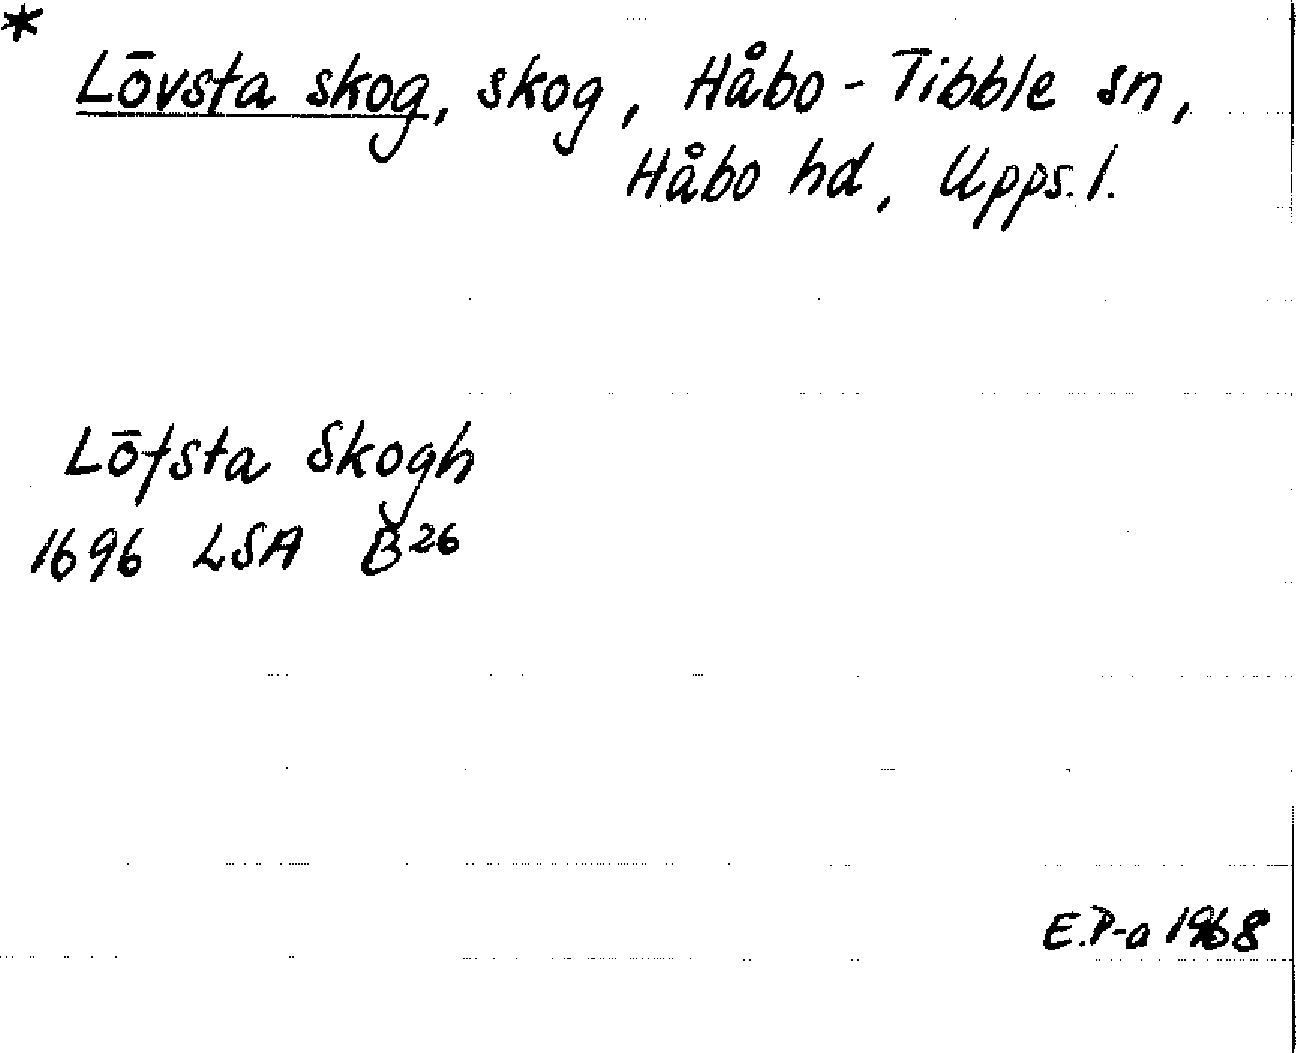 *
Lövsta skog, skog, Håbo-Tibble sn,
Håbo hd, Upps. l.
Löfsta Skogh
1696 LSA B²⁶
E.P-a 1968